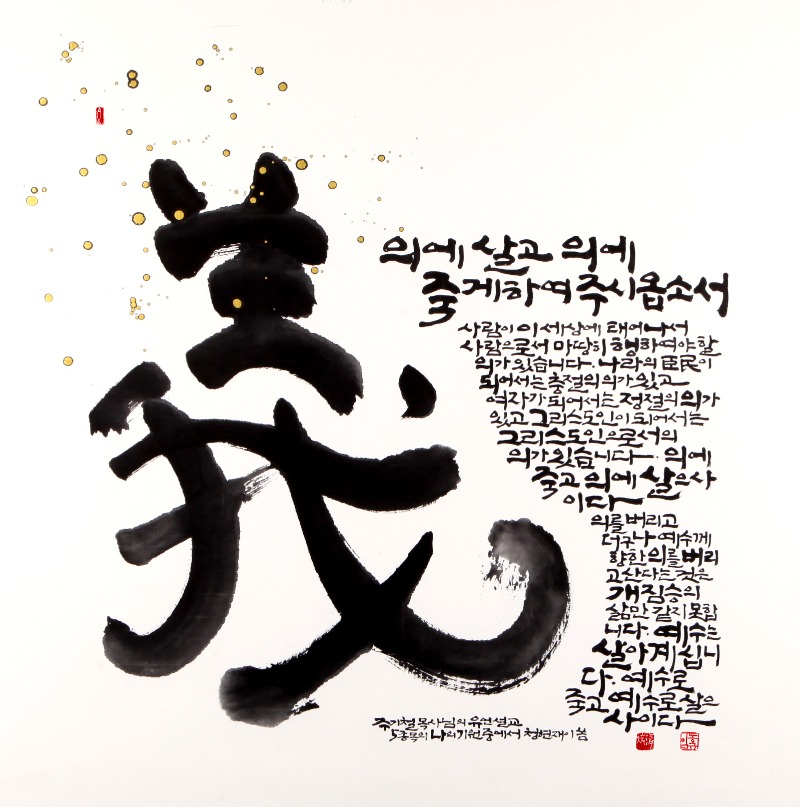 義
의에 살고 의에
죽게하여 주시옵소서
사람이 이 세상에 태어나서
사람으로서 마땅히 행하여야 할
의가 있습니다. 나라의 臣民이
되어서는 충절의 의가 있고
여자가 되어서는 정절의 의가
있고 그리스도인이 되어서는
그리스도인으로서의
의가 있습니다. 의에
죽고 의에 살으사
이다
의를 버리고
더구나 예수께
향한 의를 버리
고 산다는 것은
개 짐승의
삶만 같지 못합
니다. 예수는
살아계십니
다. 예수로
죽고 예수로 살은
사이다
주기철 목사님의 유언설교
5종목의 나의 기원 중에서 청현재이 씀